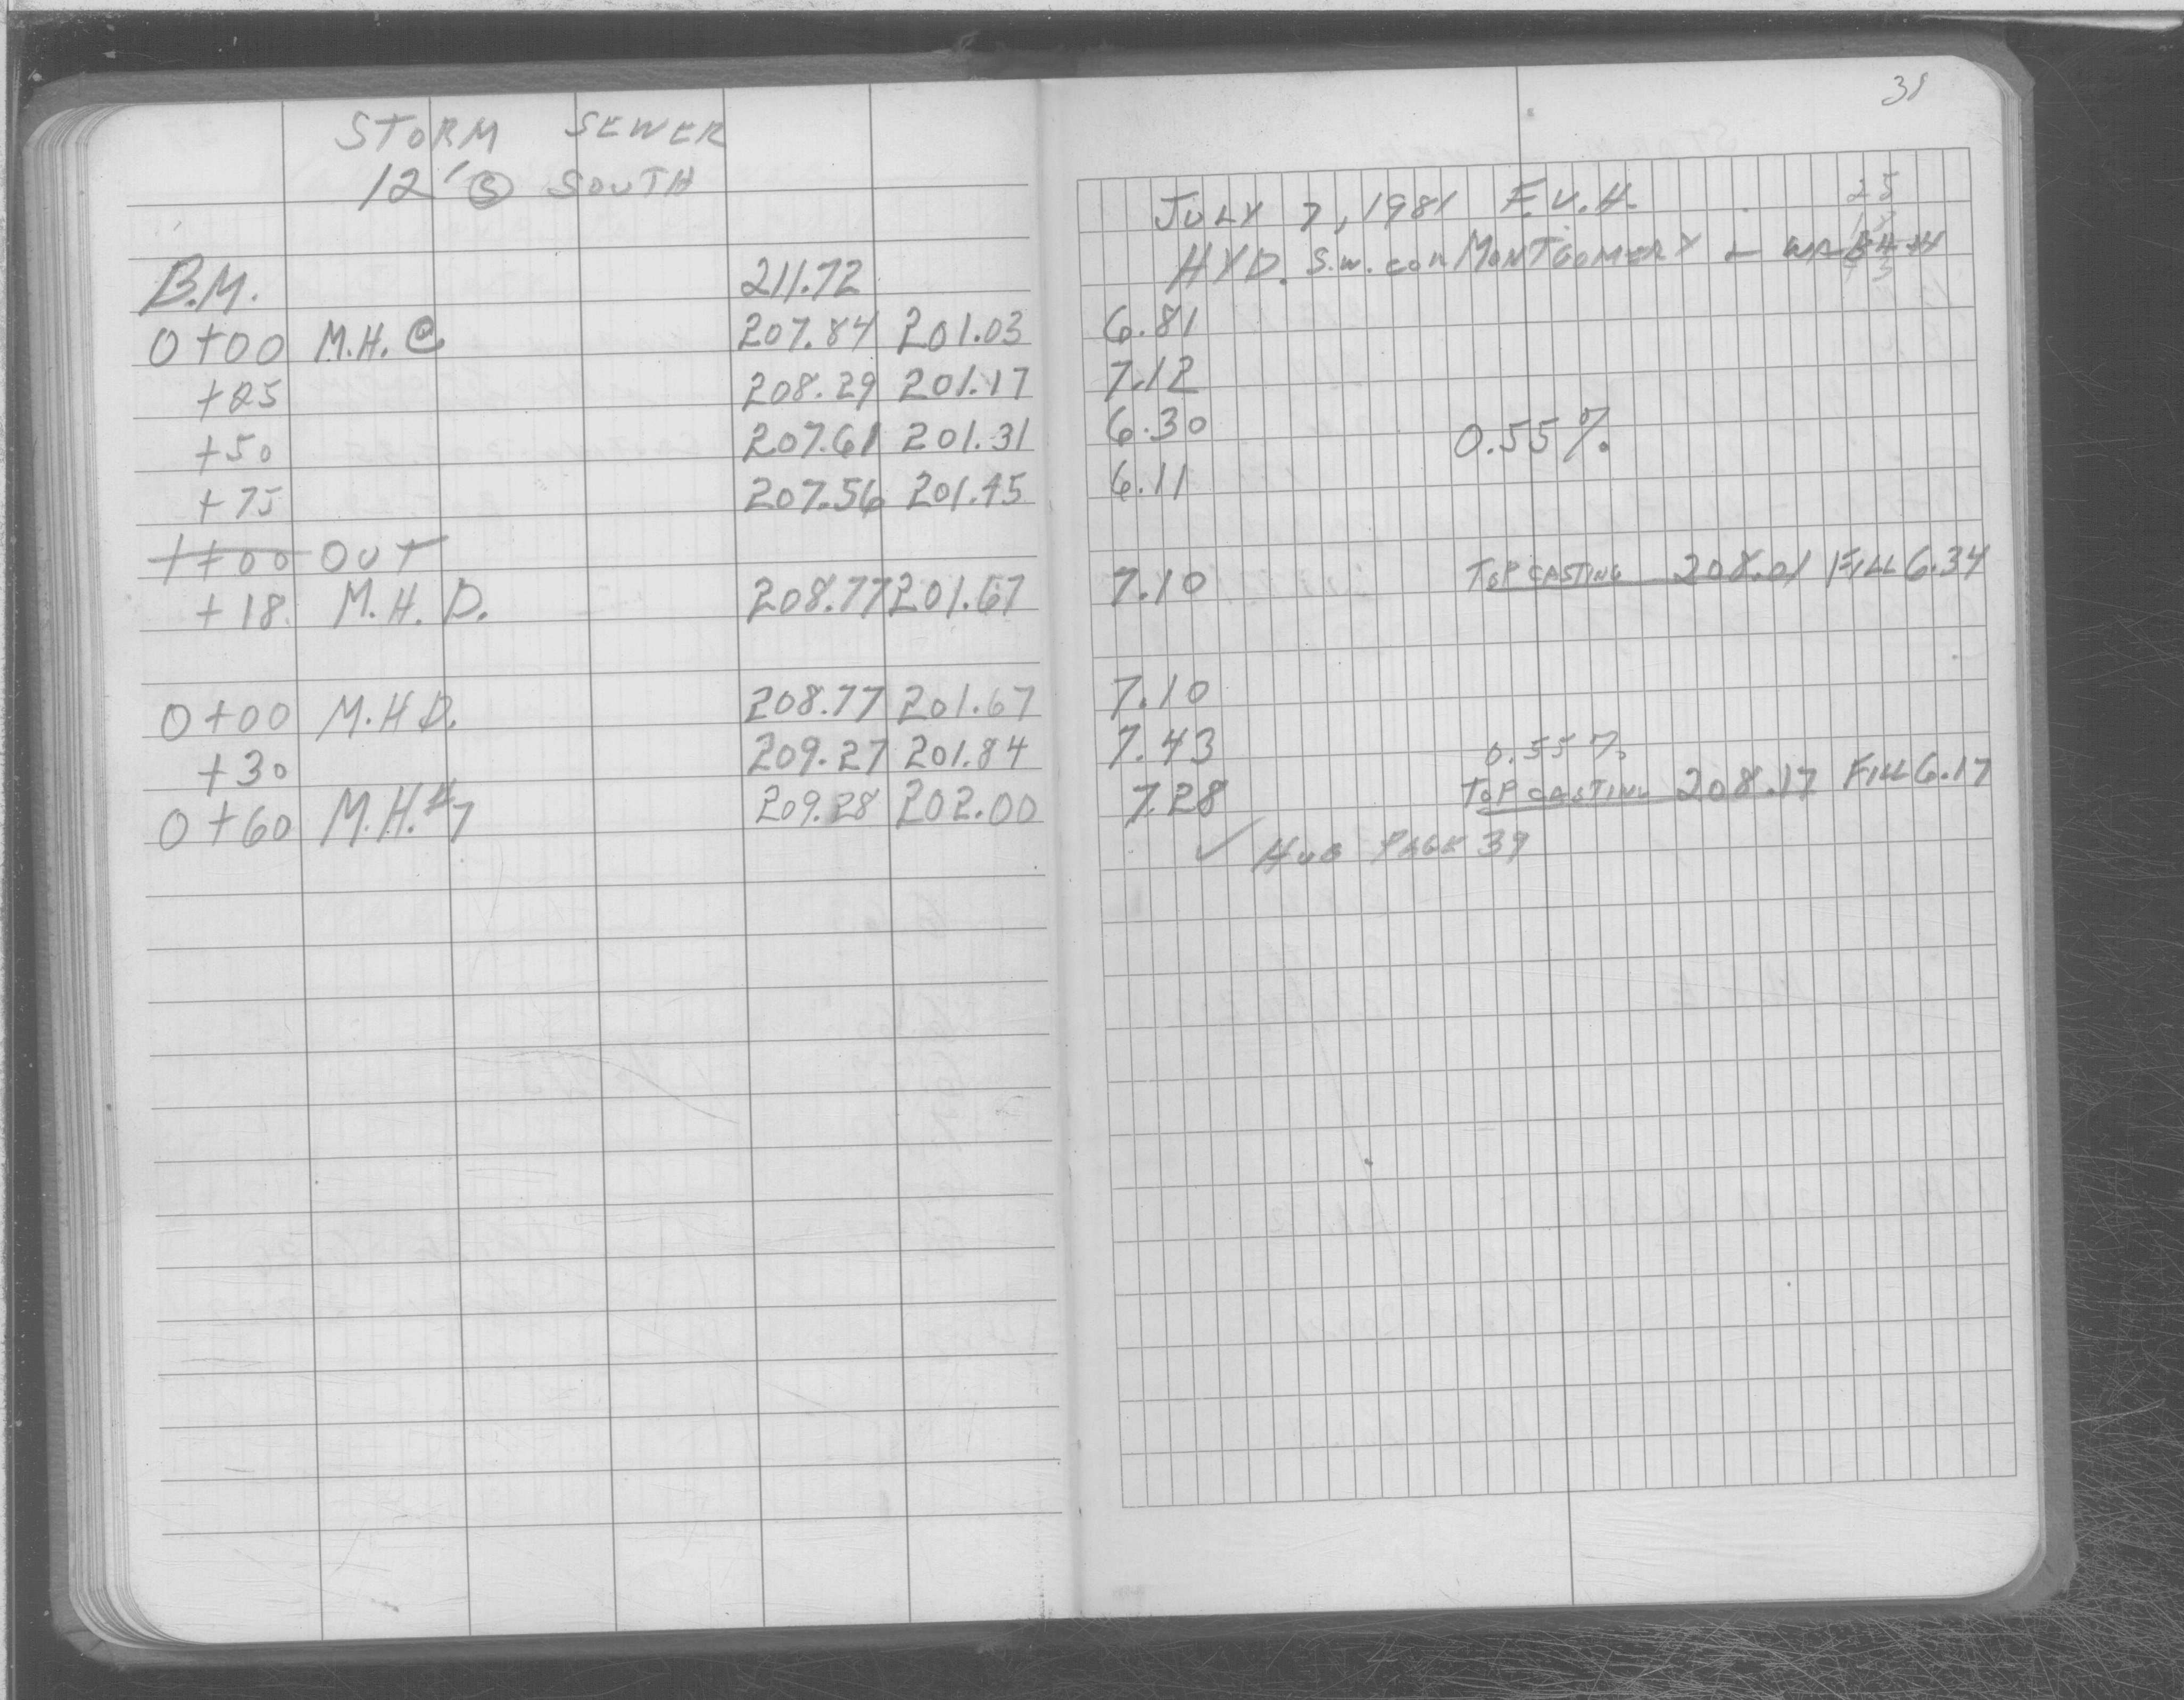 STORM SEWER
12' Ⓢ SOUTH
B.M. 211.72
0+00 M.H. C 207.84 201.03
+25 208.29 201.17
+50 207.61 201.31
+75 207.56 201.45
1+00 OUT
+18 M.H. D. 208.77 201.67
0+00 M.H D. 208.77 201.67
+30 209.27 201.84
0+60 M.H.#7 209.28 202.00
JULY 7, 1981 F.V.H. 25
HYD. S.W. COR MONTGOMERY &
6.81
7.12
6.30 0.55%
6.11
7.10 TOP CASTING 208.01 FILL 6.34
7.10
7.43 0.55%
7.28 TOP CASTING 208.17 FILL 6.17
✓ HUB PAGE 39